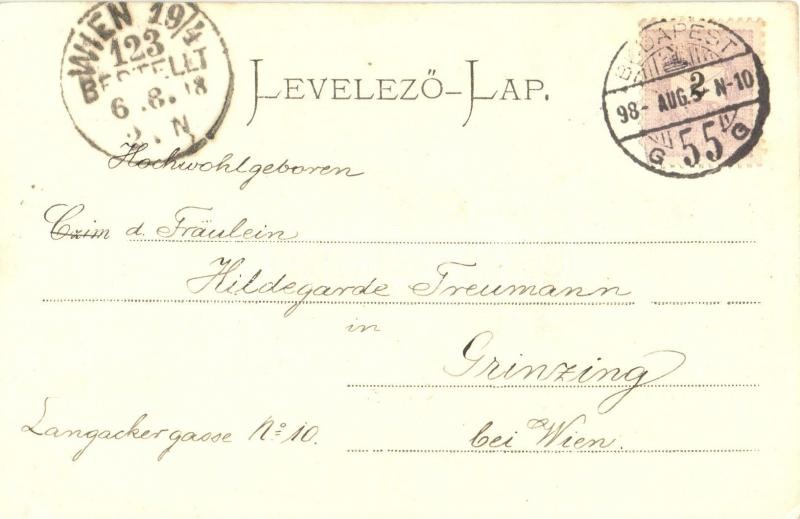 WIEN 19/4
123
BESTELLT
6.8.98
N
LEVELEZŐ-LAP.
BUDAPEST
2
98- AUG.5- N-10
G 55 G
Hochwohlgeboren
Czim d. Fräulein
Hildegarde Treumann
in
Grinzing
Langackergasse No 10.
bei Wien.